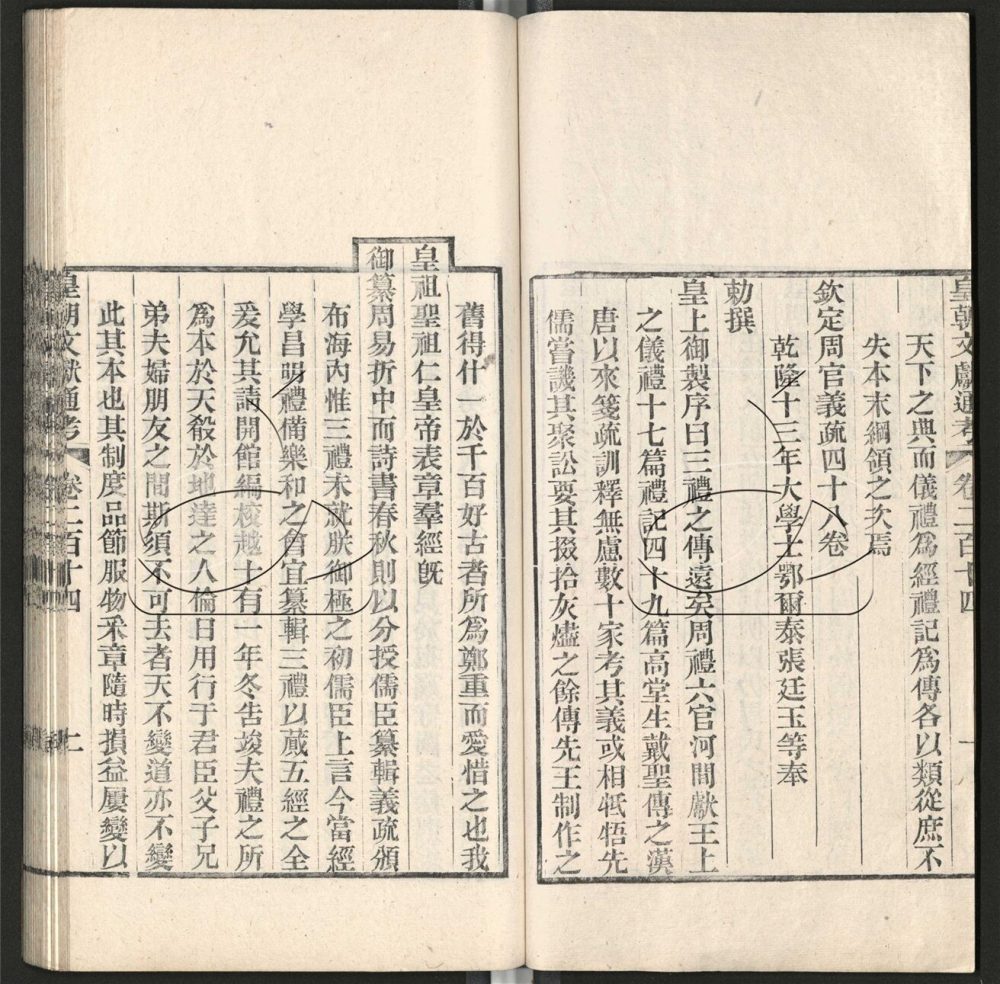 皇朝文獻通考 卷二百十四
天下之典而儀禮爲經禮記爲傳各以類從庶不
失本末綱領之次焉
欽定周官義疏四十八卷
乾隆十三年大學士鄂爾泰張廷玉等奉
勅撰
皇上御製序曰三禮之傳遠矣周禮六官河間獻王上
之儀禮十七篇禮記四十九篇高堂生戴聖傳之漢
唐以來箋疏訓釋無慮數十家考其義或相牴牾先
儒嘗譏其聚訟要其掇拾灰燼之餘傳先王制作之
舊得什一於千百好古者所爲鄭重而愛惜之也我
皇祖聖祖仁皇帝表章羣經旣
御纂周易折中而詩書春秋則以分授儒臣纂輯義疏頒
布海內惟三禮未就朕御極之初儒臣上言今當經
學昌明禮備樂和之會宜纂輯三禮以蕆五經之全
爰允其請開館編校越十有一年冬告竣夫禮之所
爲本於天殽於地達之人倫日用行于君臣父子兄
弟夫婦朋友之間斯須不可去者天不變道亦不變
此其本也其制度品節服物釆章隨時損益屢變以
皇朝文獻通考 卷二百十四